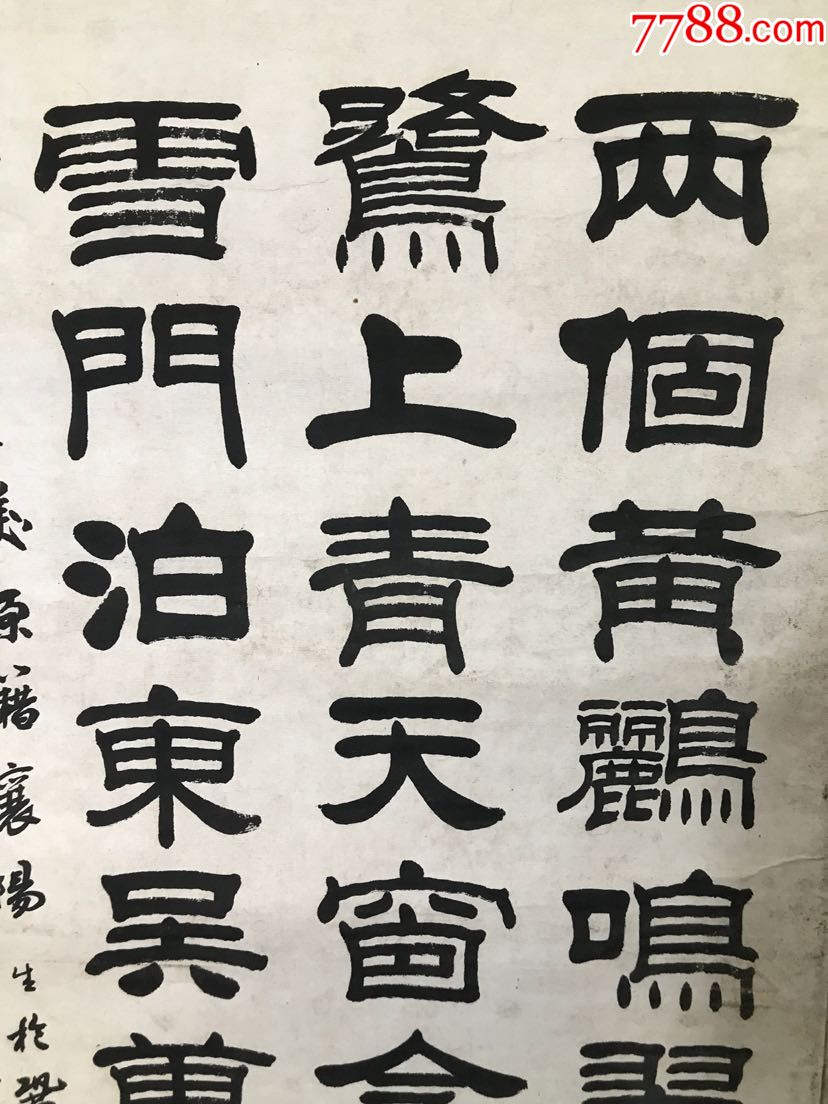 7788.com
两個黄鸝鳴翠
鷺上青天窗含
雪門泊東吴萬
原籍襄陽生於